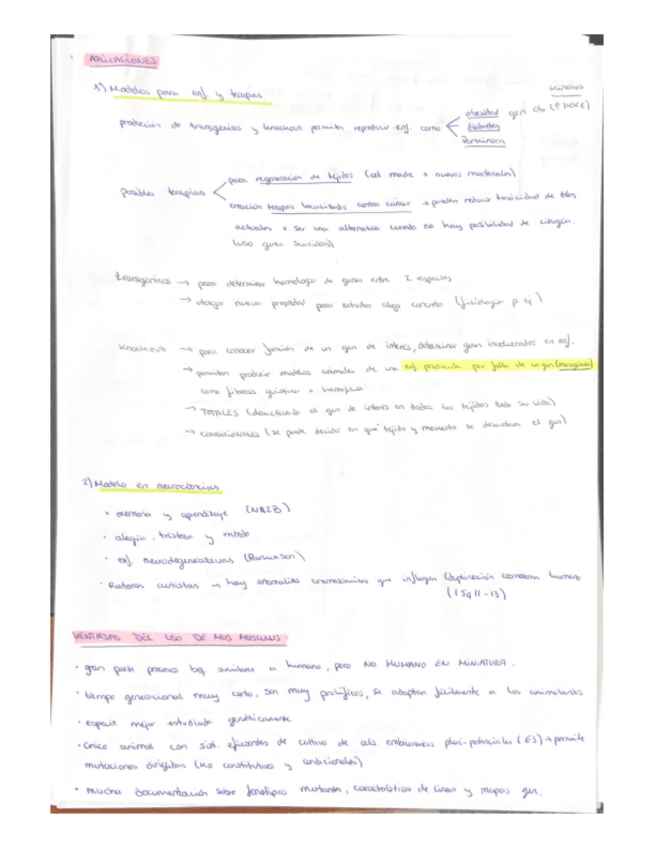 APLICACIONES
1) Modelos para enf. y terapias
producción de transgénicos y knockout permiten reproducir enf. como
obesidad gen ob
diabetes
Parkinson
posibles terapias
para regeneración de tejidos (cel madre + nuevos materiales)
creación terapias localizadas contra cáncer → pueden reducir toxicidad de
actuales o ser una alternativa cuando no hay posibilidad de cirugía.
(uso genes suicidas)
transgénicos → para determinar homología de genes entre 2 especies
→ otorgar nueva propiedad para estudiar algo concreto (fisiología p. ej)
Knockout → para conocer función de un gen de interés, determinar genes involucrados en enf.
→ permiten producir modelos animales de una enf. producida por fallo de un gen (monogénica)
como fibrosis quística o hemofilia
→ TOTALES (desactivado el gen de interés en todos los tejidos toda su vida)
→ CONDICIONALES (se puede decidir en qué tejido y momento se desactiva el gen)
2) Modelo en neurociencias
• memoria y aprendizaje (NR2B)
• alegría, tristeza y miedo
• enf. neurodegenerativas (Parkinson)
• Ratones autistas → hay anomalías cromosómicas que influyen (duplicación cromosoma humano
(15q11-13)
VENTAJAS DEL USO DE MUS MUSCULUS
• gran parte procesos bq. similares a humano, pero NO HUMANO EN MINIATURA.
• tiempo generacional muy corto, son muy prolíficos, se adaptan fácilmente a los animalarios
• especie mejor estudiada genéticamente
• único animal con sist. eficientes de cultivo de cels. embrionarias pluri-potenciales (ES) → permite
mutaciones dirigidas (KO constitutivos y condicionales)
• mucha documentación sobre fenotipos mutantes, características de líneas y mapas gen.